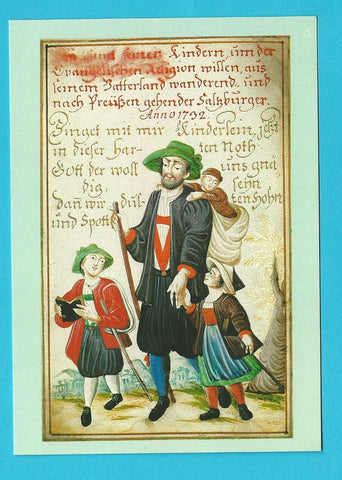 Ein samt seinen Kindern, um der
Evangelischen Religion willen, aus
seinem Vatterland wanderend, und
nach Preüßen gehender Saltzburger.
Anno 1732.
Singet mit mir Kinderlein, jetzt
in dieser Harten Noth
Gott der woll uns gnädig seÿn
dann wir dülten Hohn
und Spott